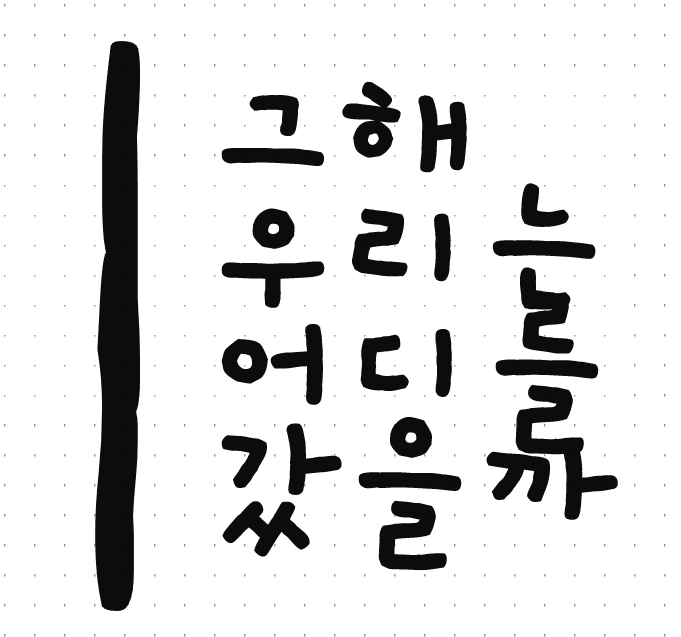 그해
우리는
어디를
갔을까